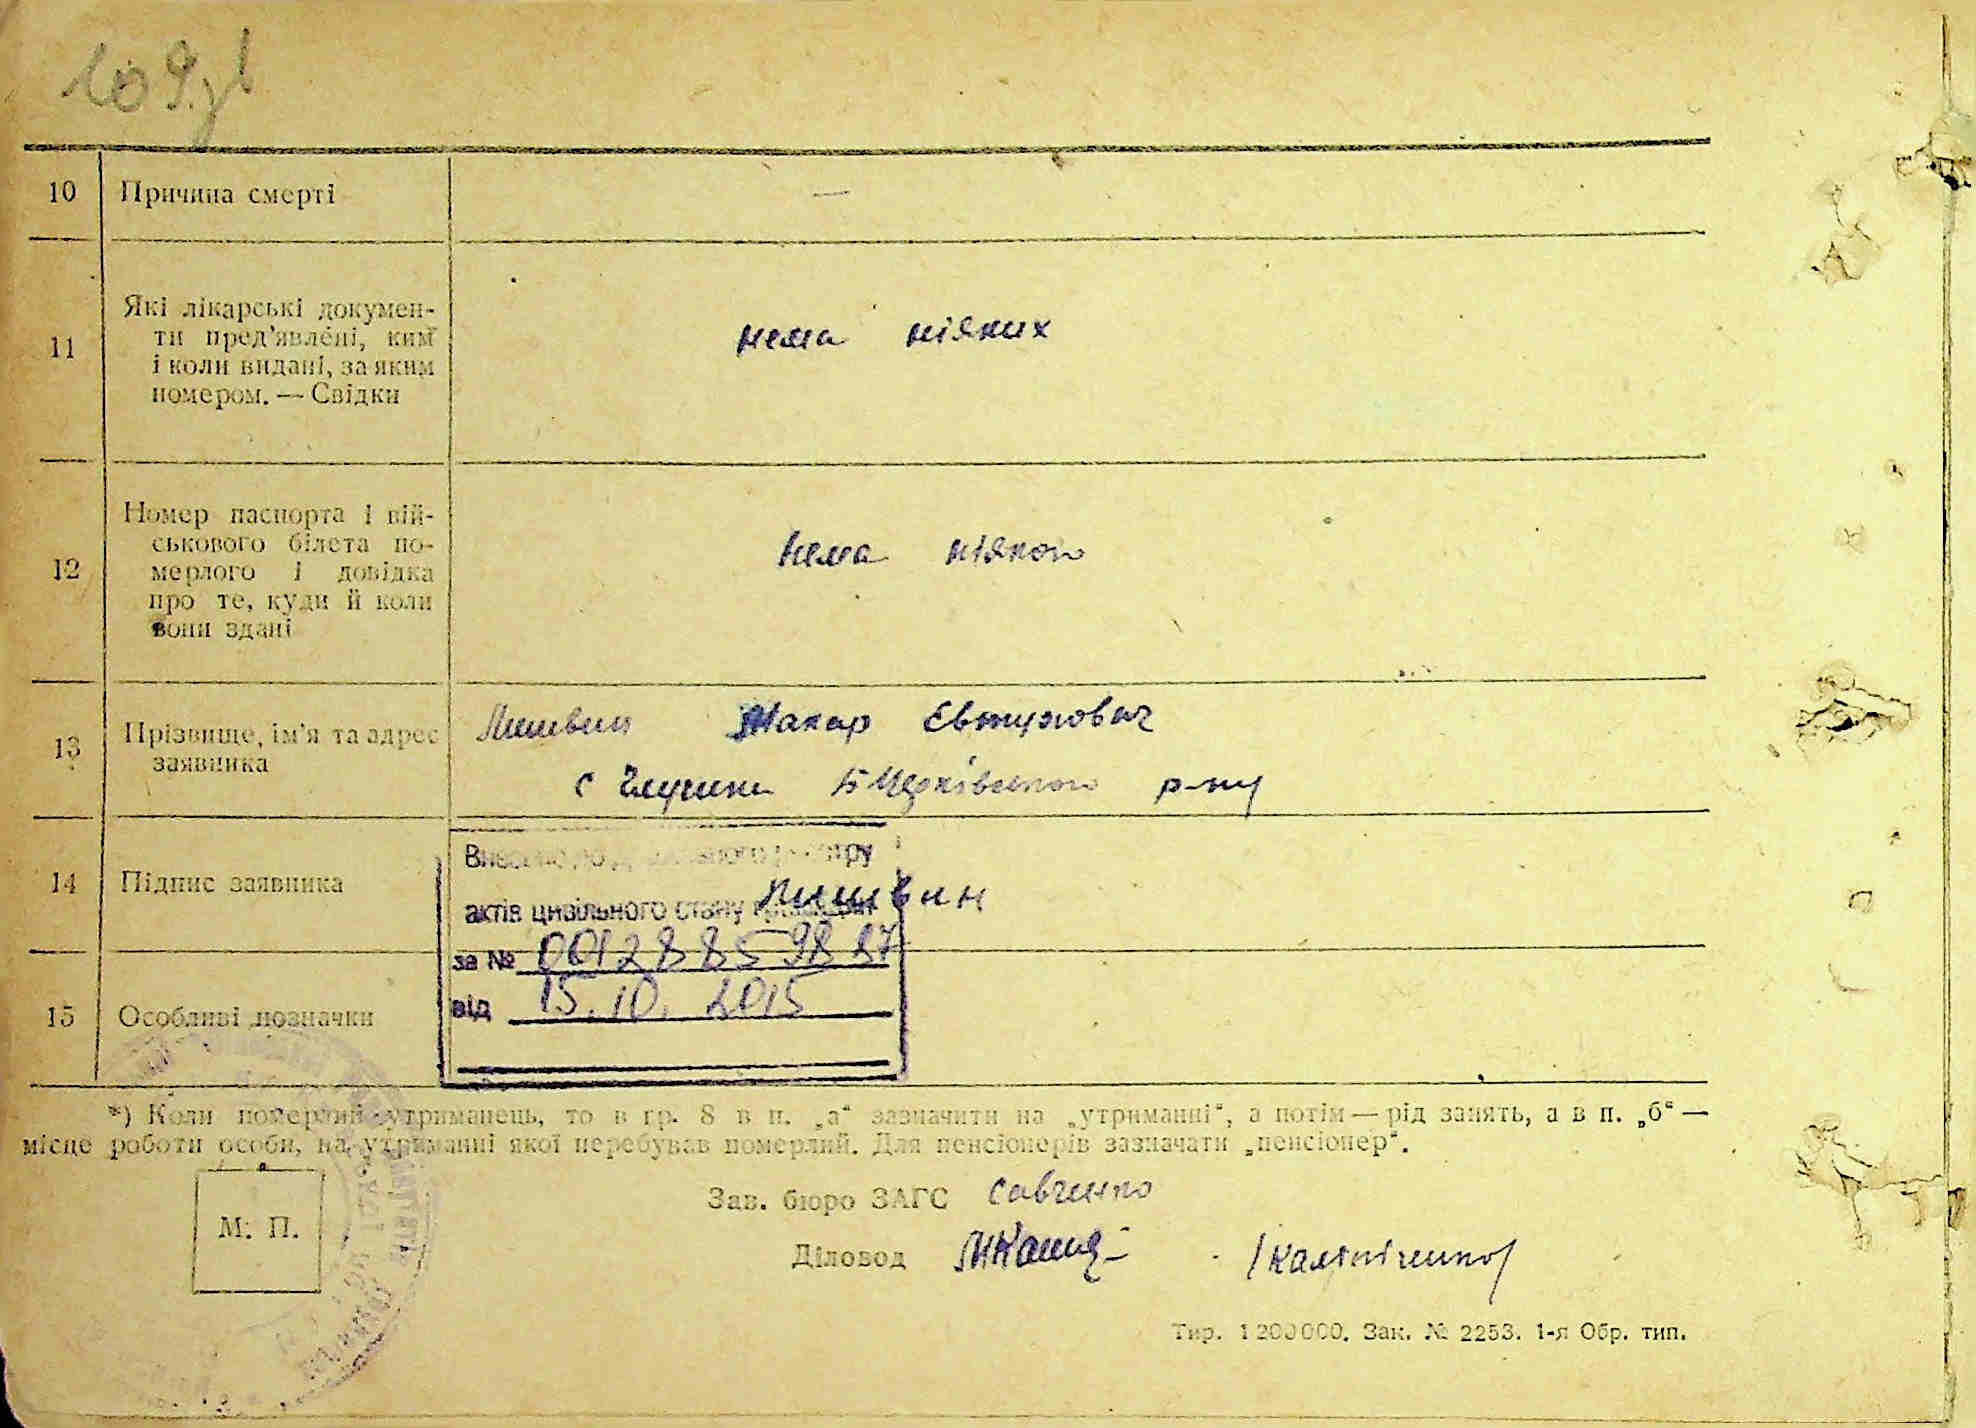 109
10 Причина смерті —
11 Які лікарські докумен-
ти пред'явлені, ким
і коли видані, за яким
номером. — Свідки
нема ніяких
12 Номер паспорта і вій-
ськового білета по-
мерлого і довідка
про те, куди й коли
вони здані
нема ніякого
13 Прізвище, ім'я та адрес
заявника
Литвин Макар Євтухович
с Глушки Б Церківського р-ну
14 Підпис заявника
Литвин
Внесено до Державного реєстру
актів цивільного стану громадян
за № 00128859887
від 15.10.2015
15 Особливі позначки
*) Коли померлий утриманець, то в гр. 8 в п. „а“ зазначити на „утриманні“, а потім — рід занять, а в п. „б“ —
місце роботи особи, на утриманні якої перебував померлий. Для пенсіонерів зазначати „пенсіонер“.
М. П.
Зав. бюро ЗАГС Савченко
Діловод
Тир. 1200000. Зак. № 2253. 1-я Обр. тип.